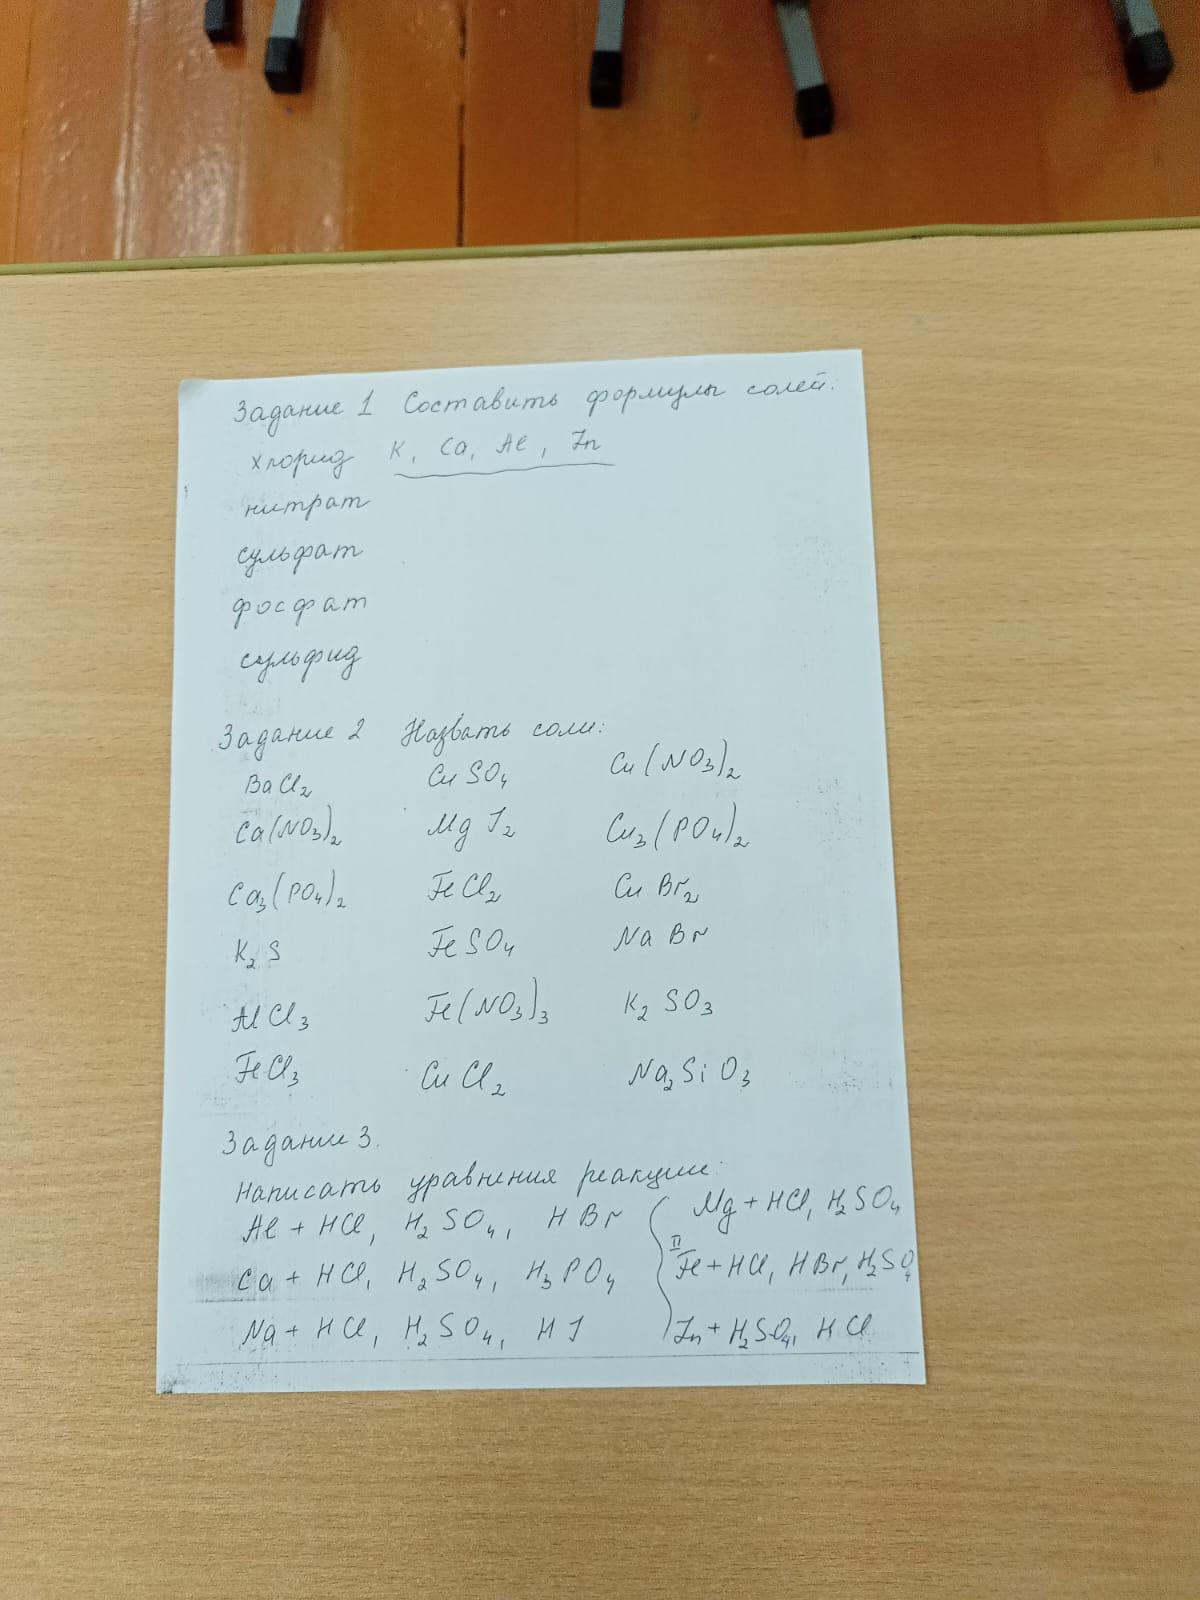 Задание 1 Составить формулы солей:
хлорид K, Ca, Al, Zn
нитрат
сульфат
фосфат
сульфид
Задание 2 Назвать соли:
BaCl₂ CuSO₄ Cu(NO₃)₂
Ca(NO₃)₂ MgJ₂ Cu₃(PO₄)₂
Ca₃(PO₄)₂ FeCl₂ CuBr₂
K₂S FeSO₄ NaBr
AlCl₃ Fe(NO₃)₃ K₂SO₃
FeCl₃ CuCl₂ Na₂SiO₃
Задание 3.
Написать уравнения реакции:
Al + HCl, H₂SO₄, HBr Mg + HCl, H₂SO₄
Ca + HCl, H₂SO₄, H₃PO₄ II Fe + HCl, HBr, H₂SO₄
Na + HCl, H₂SO₄, HJ Zn + H₂SO₄, HCl